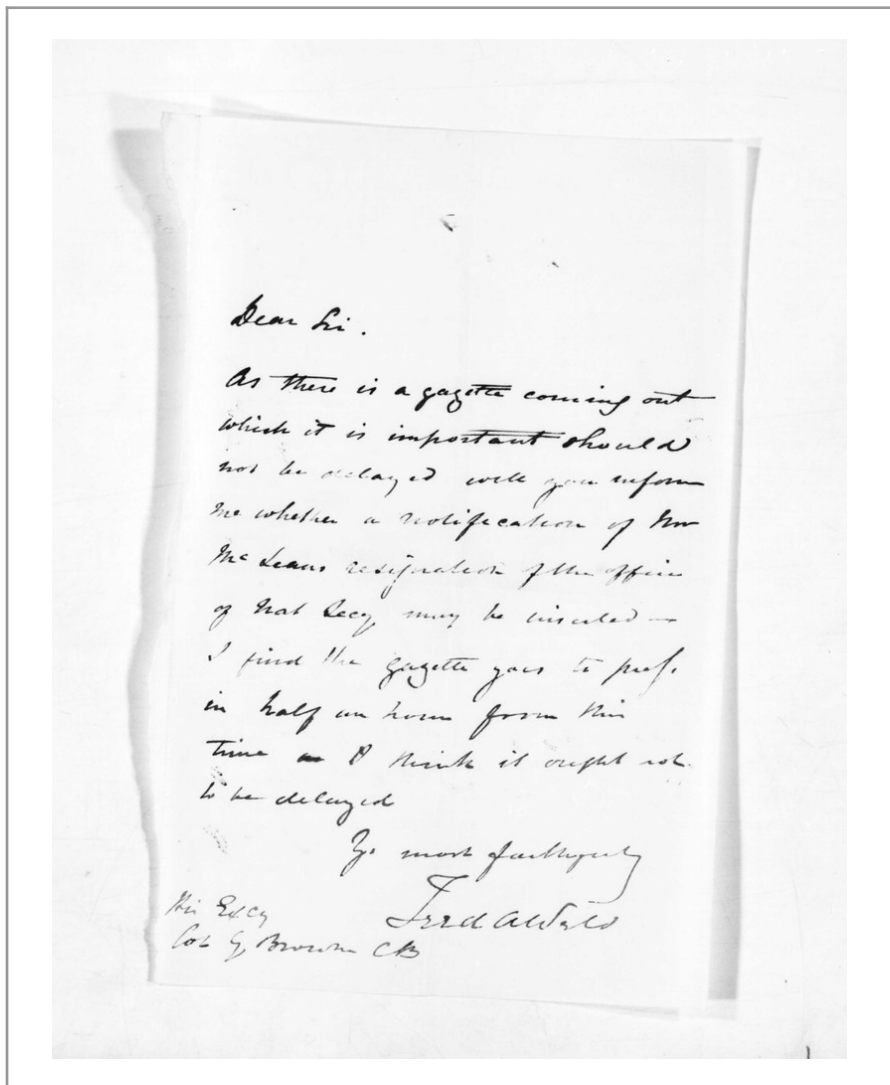 Dear Sir.
As there is a gazette coming out
which it is important should
not be delayed will you inform
me whether a notification of Mr
McLeans resignation of the office
of Nat Secy may be inserted —
I find the gazette goes to press
in half an hour from this
time & I think it ought not
to be delayed
Yr most faithfully
Fred A Weld
His Excy
Col G. Browne CB